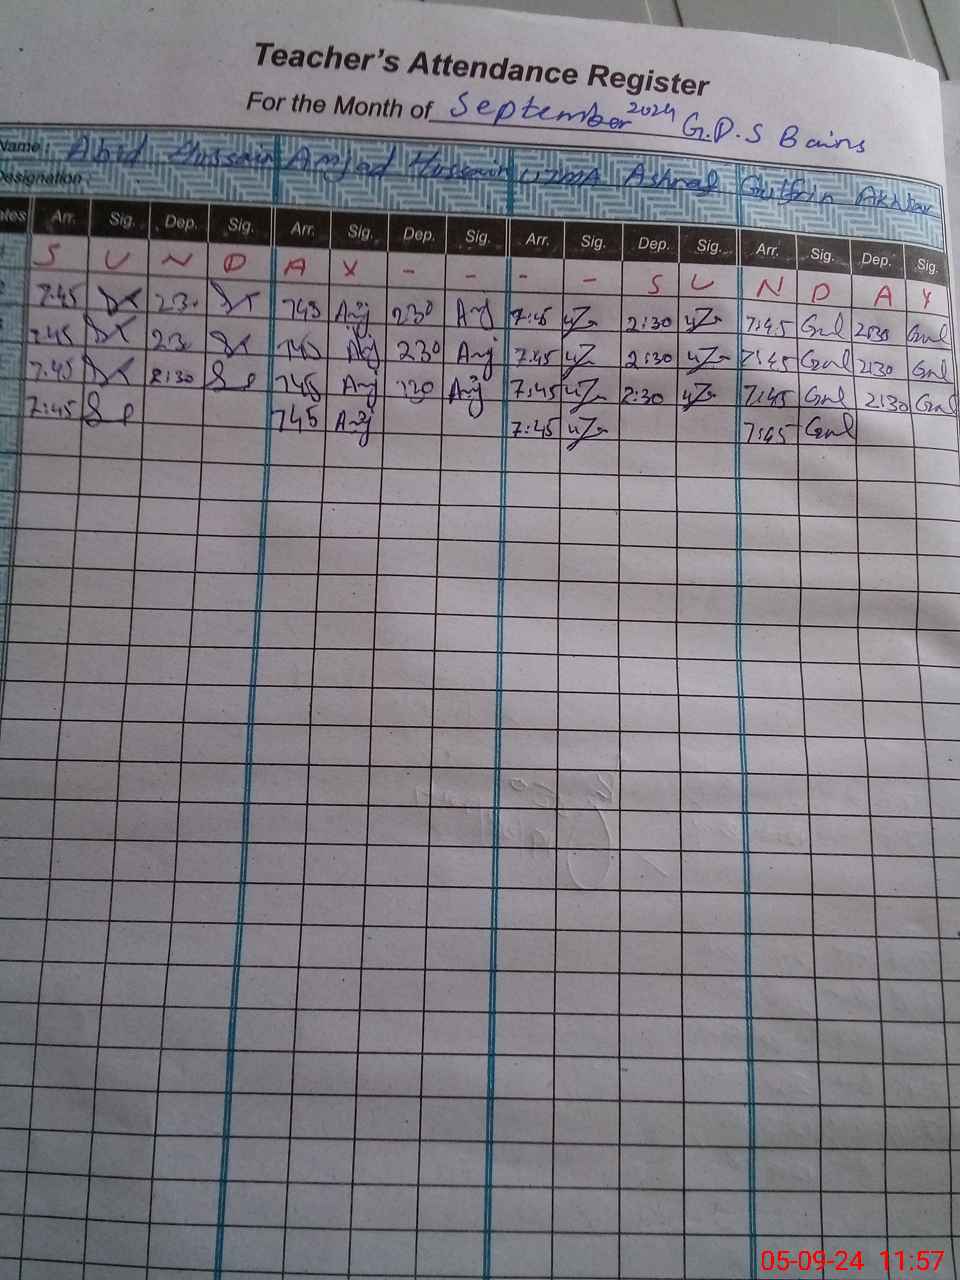 Teacher's Attendance Register
For the Month of September 2024 G.P.S Bains
Name: Abid Hussain Amjad Hussain UZMA Ashraf Akhtar
Designation:
Arr. Sig. Dep. Sig. Arr. Sig. Dep. Sig. Arr. Sig. Dep. Sig. Arr. Sig. Dep. Sig.
S U N D A Y - - - - S U N D A Y
7:45 2:30 745 Amj 230 Amj 7:45 uz 2:30 uz 7:45 Gul 2:30 Gul
7:45 2:30 745 Amj 230 Amj 7:45 uz 2:30 uz 7:45 Gul 2:30 Gul
7:45 2:30 745 Amj 230 Amj 7:45 uz 2:30 uz 7:45 Gul 2:30 Gul
7:45 745 Amj 7:45 uz 7:45 Gul
05-09-24 11:57